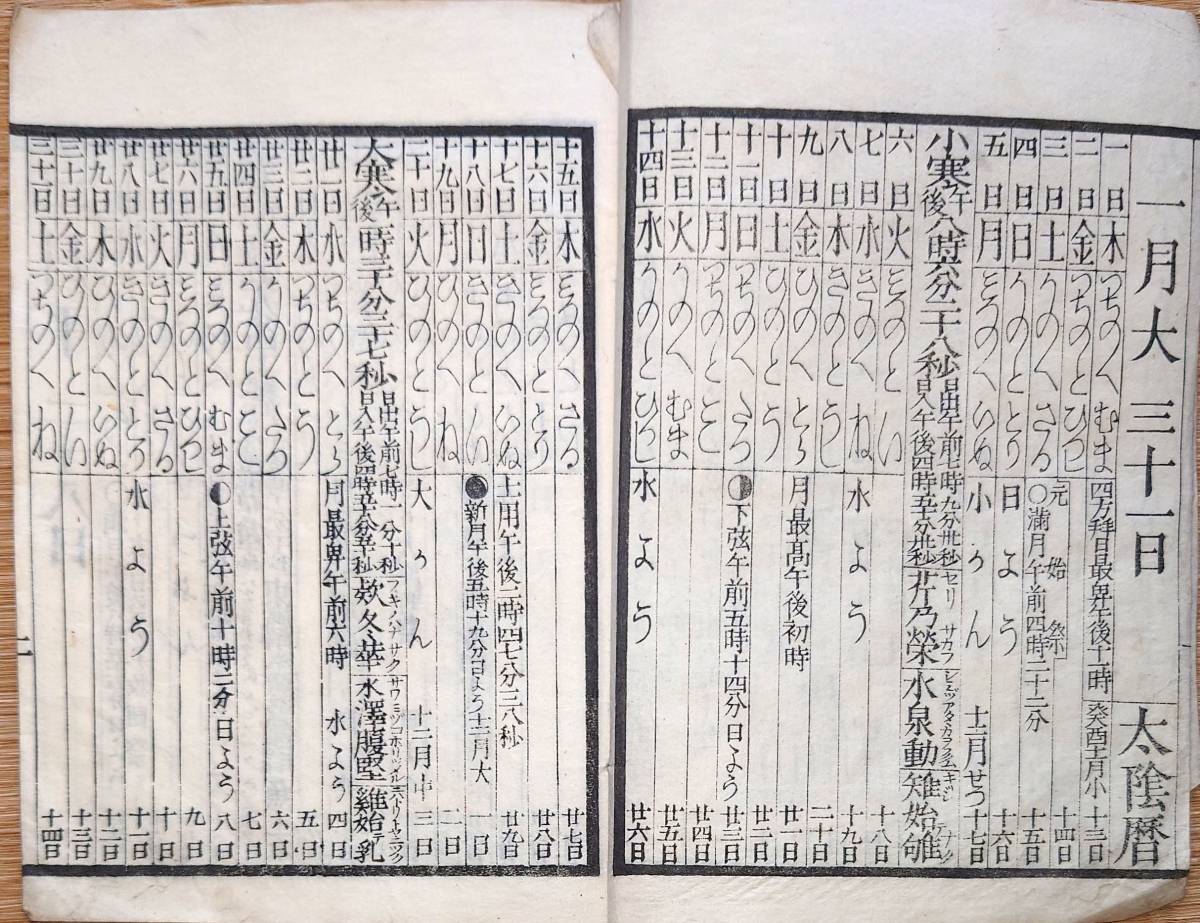 一月大 三十一日 太陰暦
一日 木 つちのへ むま 四方拝 日最卑午後十一時 癸酉十一月小 十三日
二日 金 つちのと ひつし 十四日
三日 土 かのへ さる 元始祭 ○満月午前四時二十二分 十五日
四日 日 かのと とり 日よう 十六日
五日 月 みつのへ いぬ 小かん 十二月せつ 十七日
小寒 午後八時 分二十八秒 日出午前七時九分卅秒 日入午後四時五十分卅秒 芹乃榮 セリ サカフ 水泉動 雉始雊
六日 火 みつのと い 十八日
七日 水 きのへ ね 水よう 十九日
八日 木 きのと うし 二十日
九日 金 ひのへ とら 月最高午後初時 廿一日
十日 土 ひのと う 廿二日
十一日 日 つちのへ たつ 下弦午前五時十四分 日よう 廿三日
十二日 月 つちのと み 廿四日
十三日 火 かのへ むま 廿五日
十四日 水 かのと ひつし 水よう 廿六日
十五日 木 みつのへ さる 廿七日
十六日 金 みつのと とり 廿八日
十七日 土 きのへ いぬ 土用午後二時四七分三八秒 廿九日
十八日 日 きのと い ●新月午後五時十九分 日よう 十二月大 一日
十九日 月 ひのへ ね 二日
二十日 火 ひのと うし 大かん 十二月中 三日
大寒 午後一時三十分三十七秒 日出午前七時一分十秒 日入午後四時五十八分五十秒 欵冬華 フキノハナサク 水澤腹堅 サワミヅコホリツメル 雞始乳
廿一日 水 つちのへ とら 月最卑午前六時 水よう 四日
廿二日 木 つちのと う 五日
廿三日 金 かのへ たつ 六日
廿四日 土 かのと み 七日
廿五日 日 みつのへ むま 上弦午前十時二分 日よう 八日
廿六日 月 みつのと ひつし 九日
廿七日 火 きのへ さる 十日
廿八日 水 きのと とり 水よう 十一日
廿九日 木 ひのへ いぬ 十二日
三十日 金 ひのと い 十三日
三十一日 土 つちのへ ね 十四日